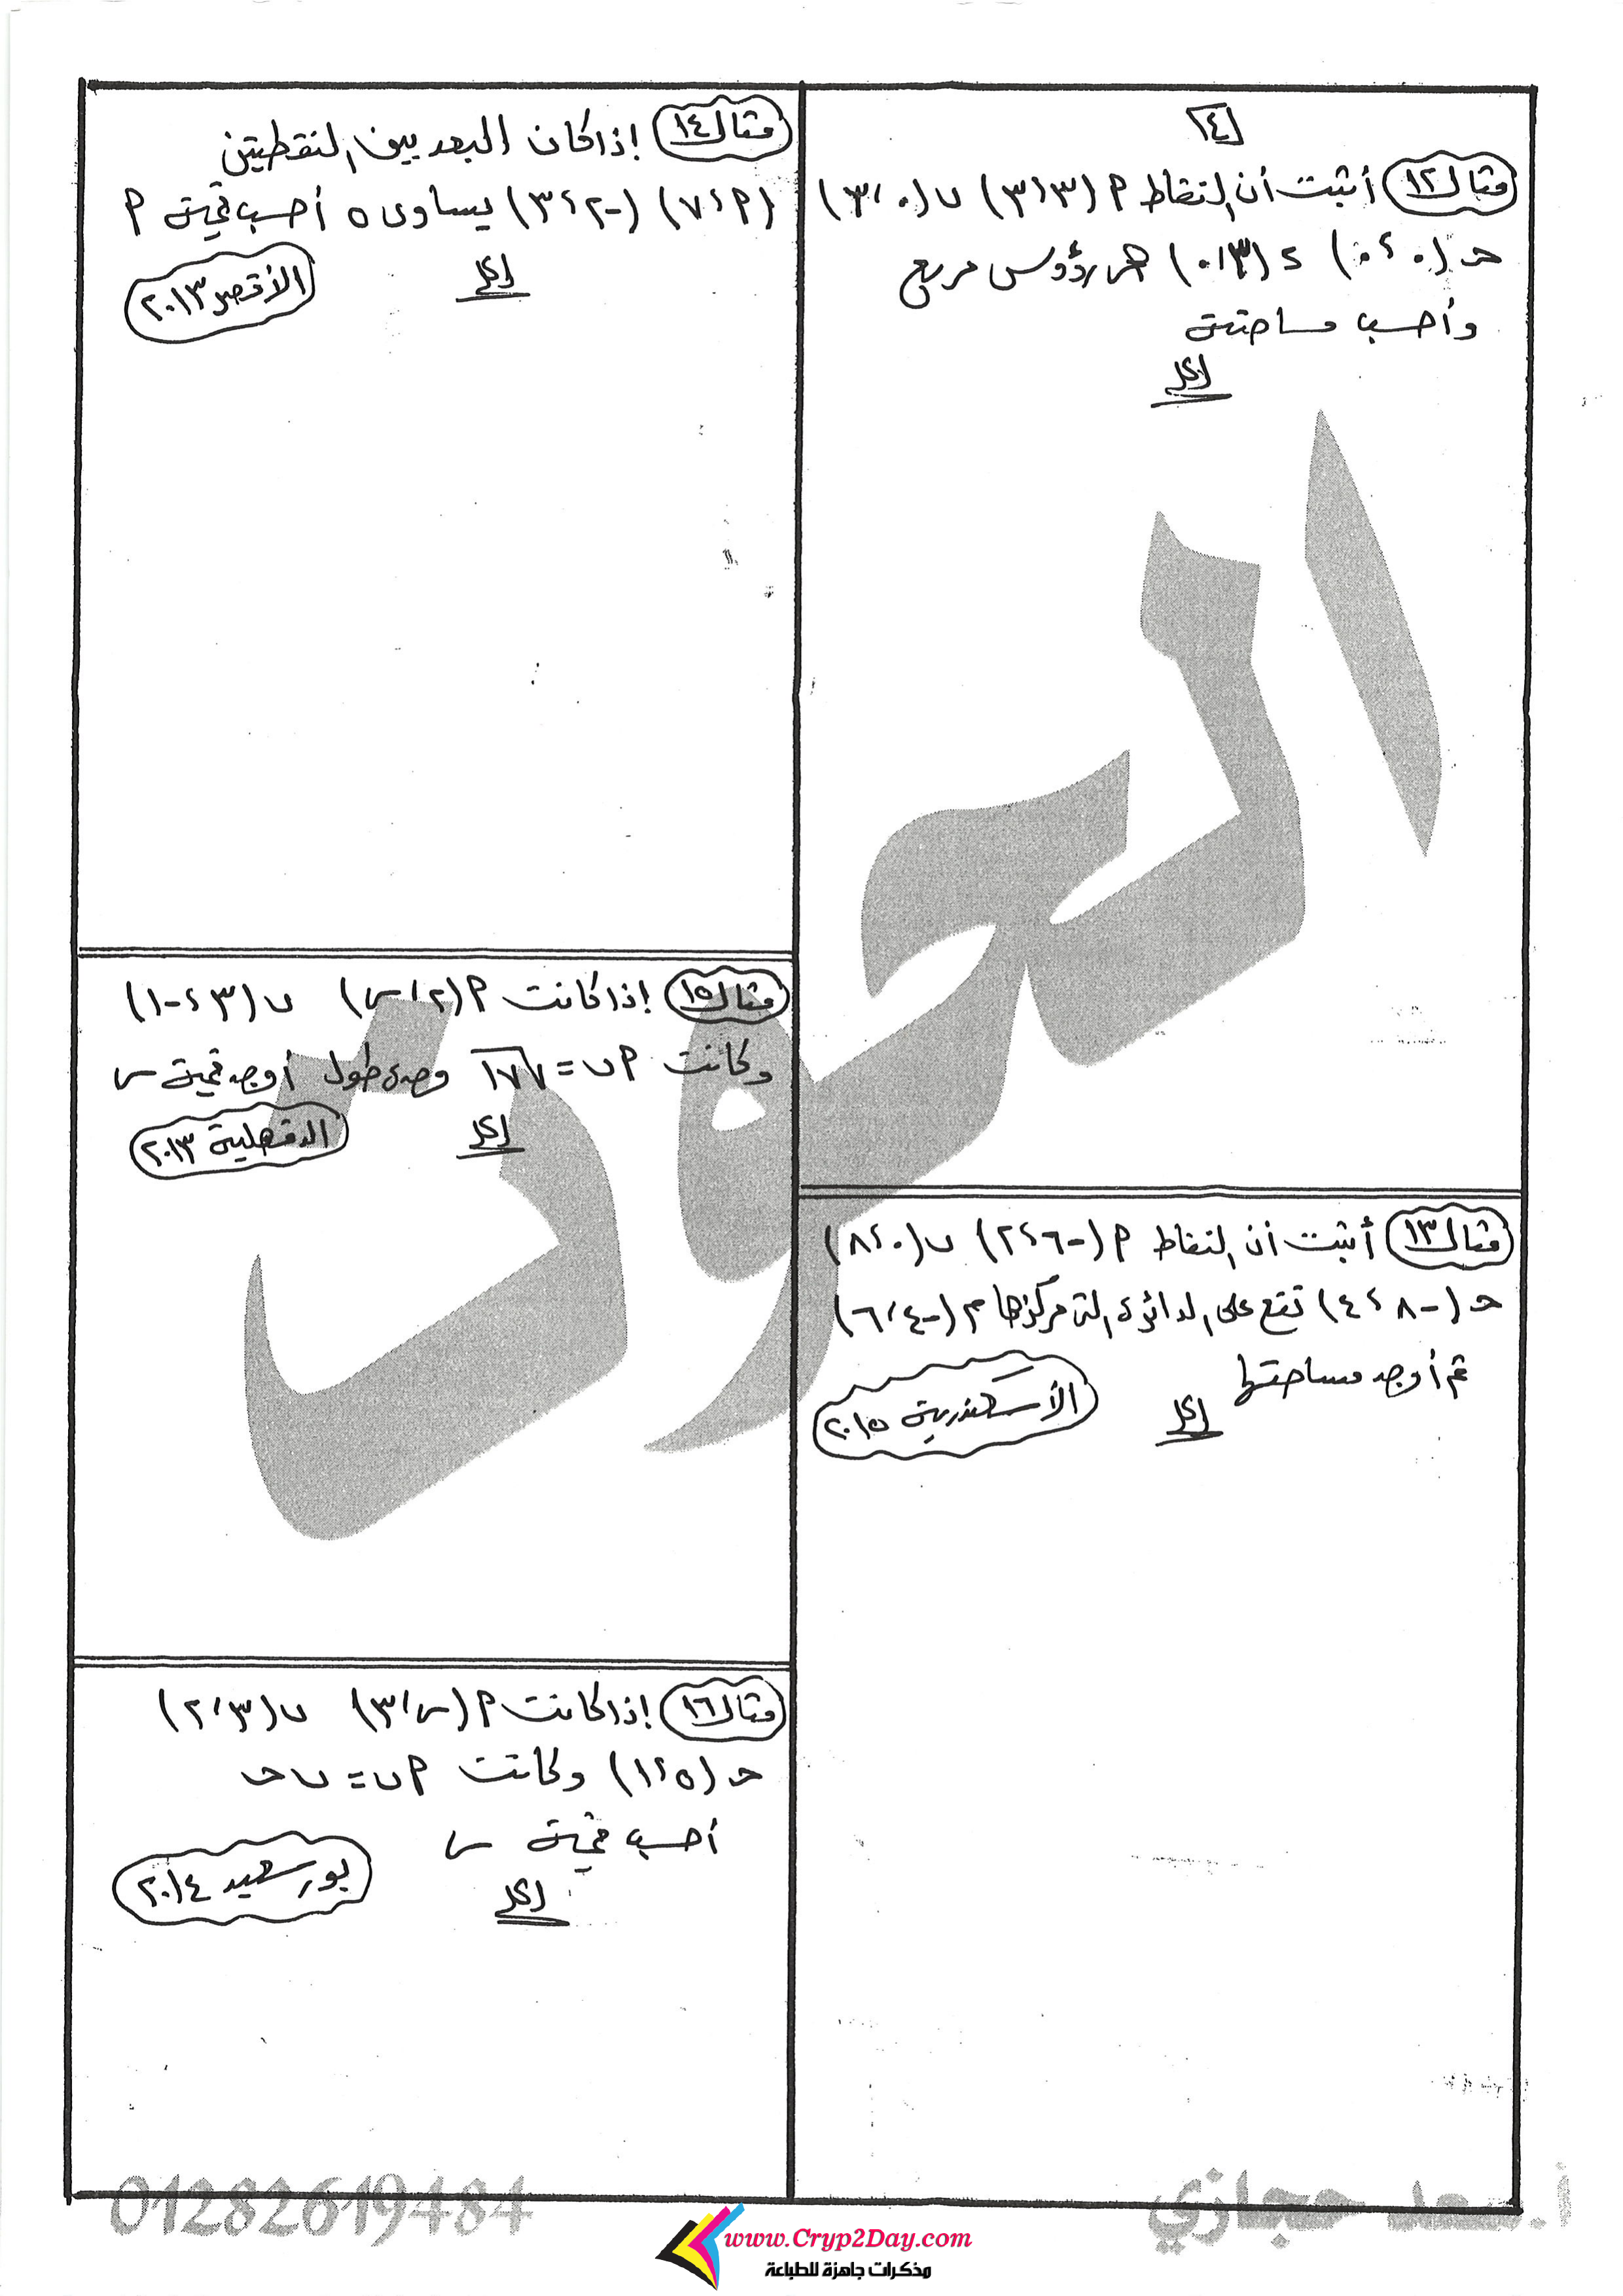 ١٤
مثال ١٢ أثبت أن النقاط م (٣،٣) ب (٠،٣)
حـ (٠،٠) د (٣،٠) هى رؤوس مربع
وأحسب مساحته
الحل
مثال ١٣ أثبت أن النقاط م (-٦،٢) ب (٠،٨)
حـ (-٨،٤) تقع على الدائرة التى مركزها م (-٤،٦)
ثم أوجد مساحتها
الحل
الأسكندرية ٢٠١٥
مثال ١٤ إذا كان البعد بين النقطتين
(م،٧) (-٢،٣) يساوى ٥ أحسب قيمة م
الحل
الأقصر ٢٠١٣
مثال ١٥ إذا كانت م (٢،س) ب (٣،-١)
وكانت م ب = √١٧ وحدة طول أوجد قيمة س
الحل
الدقهلية ٢٠١٣
مثال ١٦ إذا كانت م (س،٣) ب (٣،٢)
حـ (٥،١) وكانت م ب = ب حـ
أحسب قيمة س
الحل
بورسعيد ٢٠١٤
01282619484
أ.سعد حجازي
www.Cryp2Day.com
مذكرات جاهزة للطباعة